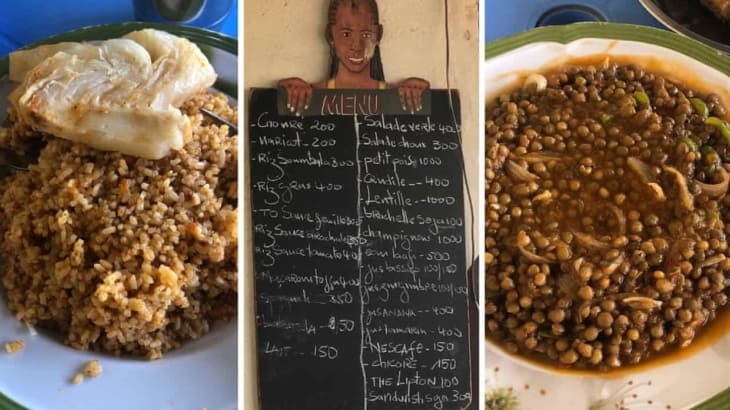 MENU
Gonré 200
Haricot - 200
Riz Soumbala 300
Riz gras 400
TO Sauce feuille
Riz Sauce arachide 350
Riz Sauce tomate 40
Macaroni
Spaguetti - 350
50
LAIT - 150
Salade verte 400
Salade chou 300
petit pois 1000
- 400
Lentille - 1000
brochette Soja 100
champignon 1000
- 500
jus bassap 100/150
jus gingimbre 100/150
- 400
jus tamarin - 400
NESCAFE - 150
- CHICORE - 150
THE Lipton 100
Sandwish soja 300